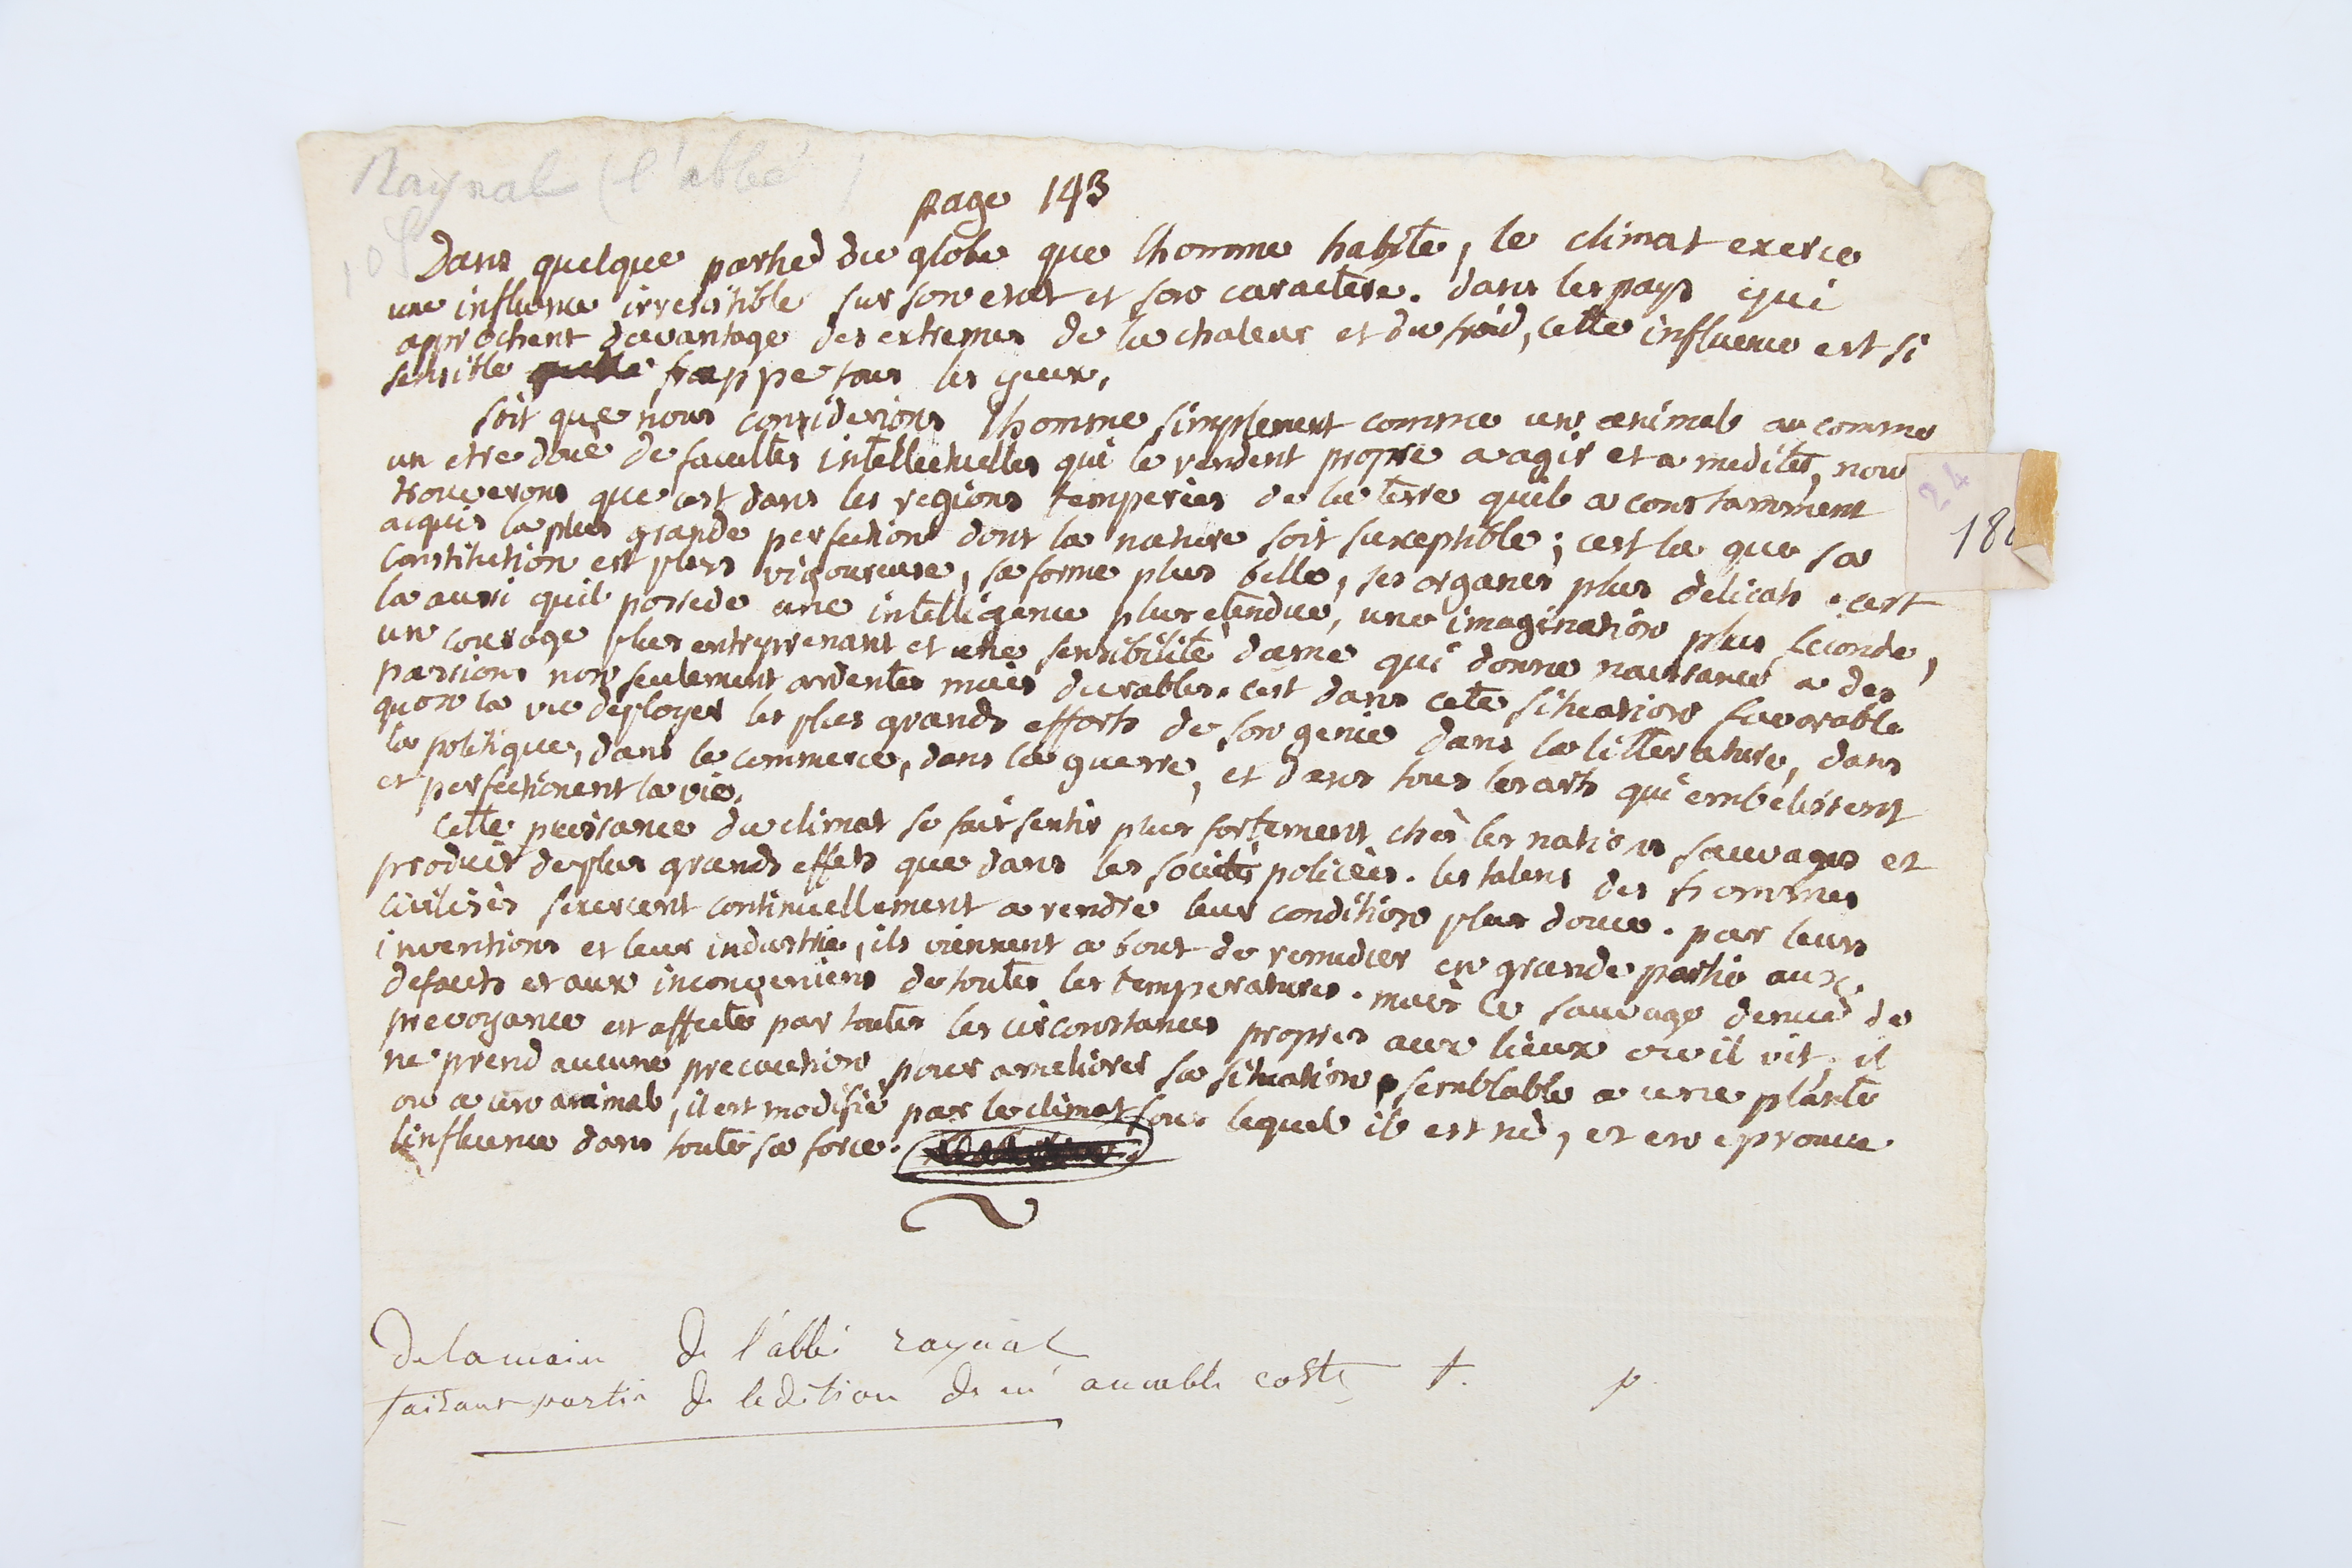 Raynal (l'abbé)
page 143
Dans quelque partie du globe que lhomme habite, le climat exerce
une influence irresistible sur son etat et son caractere. dans les pays qui
aprochent davantage des extremes de la chaleur et du froid, cette influence est si
sensible quelle frappe tous les yeux.
soit que nous considerions lhomme simplement comme un animal ou comme
un etre doué de facultés intellectuelles qui le rendent propre a agir et a mediter, nous
trouverons que cest dans les regions temperées de la terre quil a constamment
acquis la plus grande perfection dont la nature soit susceptible; cest la que sa
constitution est plus vigoureuse, sa forme plus belle, ses organes plus delicats. cest
la aussi quil possede une intelligence plus etendue, une imagination plus feconde,
un courage plus entreprenant et une sensibilité dame qui donne naissance a des
passions non seulement ardentes mais durables. cest dans cette situation favorable
quon la vu deployer les plus grands efforts de son genie dans la litterature, dans
la politique, dans le commerce, dans la guerre, et dans tous les arts qui embelissent
et perfectionent la vie.
Cette puissance du climat se fait sentir plus fortement chés les nations sauvages et
produit de plus grands effets que dans les societés policées. les talens des hommes
civilisés sexercent continuellement a rendre leur condition plus douce. par leurs
inventions et leur industrie, ils viennent a bout de remedier en grande partie aux
defauts et aux inconveniens de toutes les temperatures. mais le sauvage denué de
prevoyance est affecté par toutes les circonstances propres aux lieux ou il vit; il
ne prend aucune precaution pour ameliorer sa situation semblable a une plante
ou a un animal, il est modifié par le climat sous lequel il est né, et en eprouve
linfluence dans toute sa force.
De la main de l'abbé raynal
faisant partie de ledition de m aimable coste t. p.
24
18